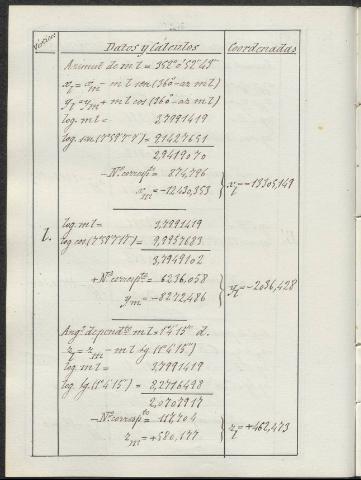 Vértices
Datos y Cálculos
Coordenadas
Azimut de m l = 352° 0' 52' 43"
x_l = x_m - m l sen (360° - az m l)
y_l = y_m + m l cos (360° - az m l)
log. m l = 3,7991419
log. sen (7° 59' 7" 7") = 9,1427651
2,9419070
- Nº corresp.te = 874,796
x_m = -12430,353
x_l = -13305,149
l.
log. m l = 3,7991419
log cos (7° 59' 7" 17") = 9,9957683
3,7949102
+ Nº corresp.te = 6236,058
y_m = -8272,486
y_l = -2036,428
Ang.º depend.te m l = 1° 4' 15" d.
z_l = z_m - m l tg. (1° 4' 15")
log. m l = 3,7991419
log. tg. (1° 4' 15") = 8,2716498
2,0707917
- Nº corresp.te = 117,704
z_m = +580,177
z_l = +462,473